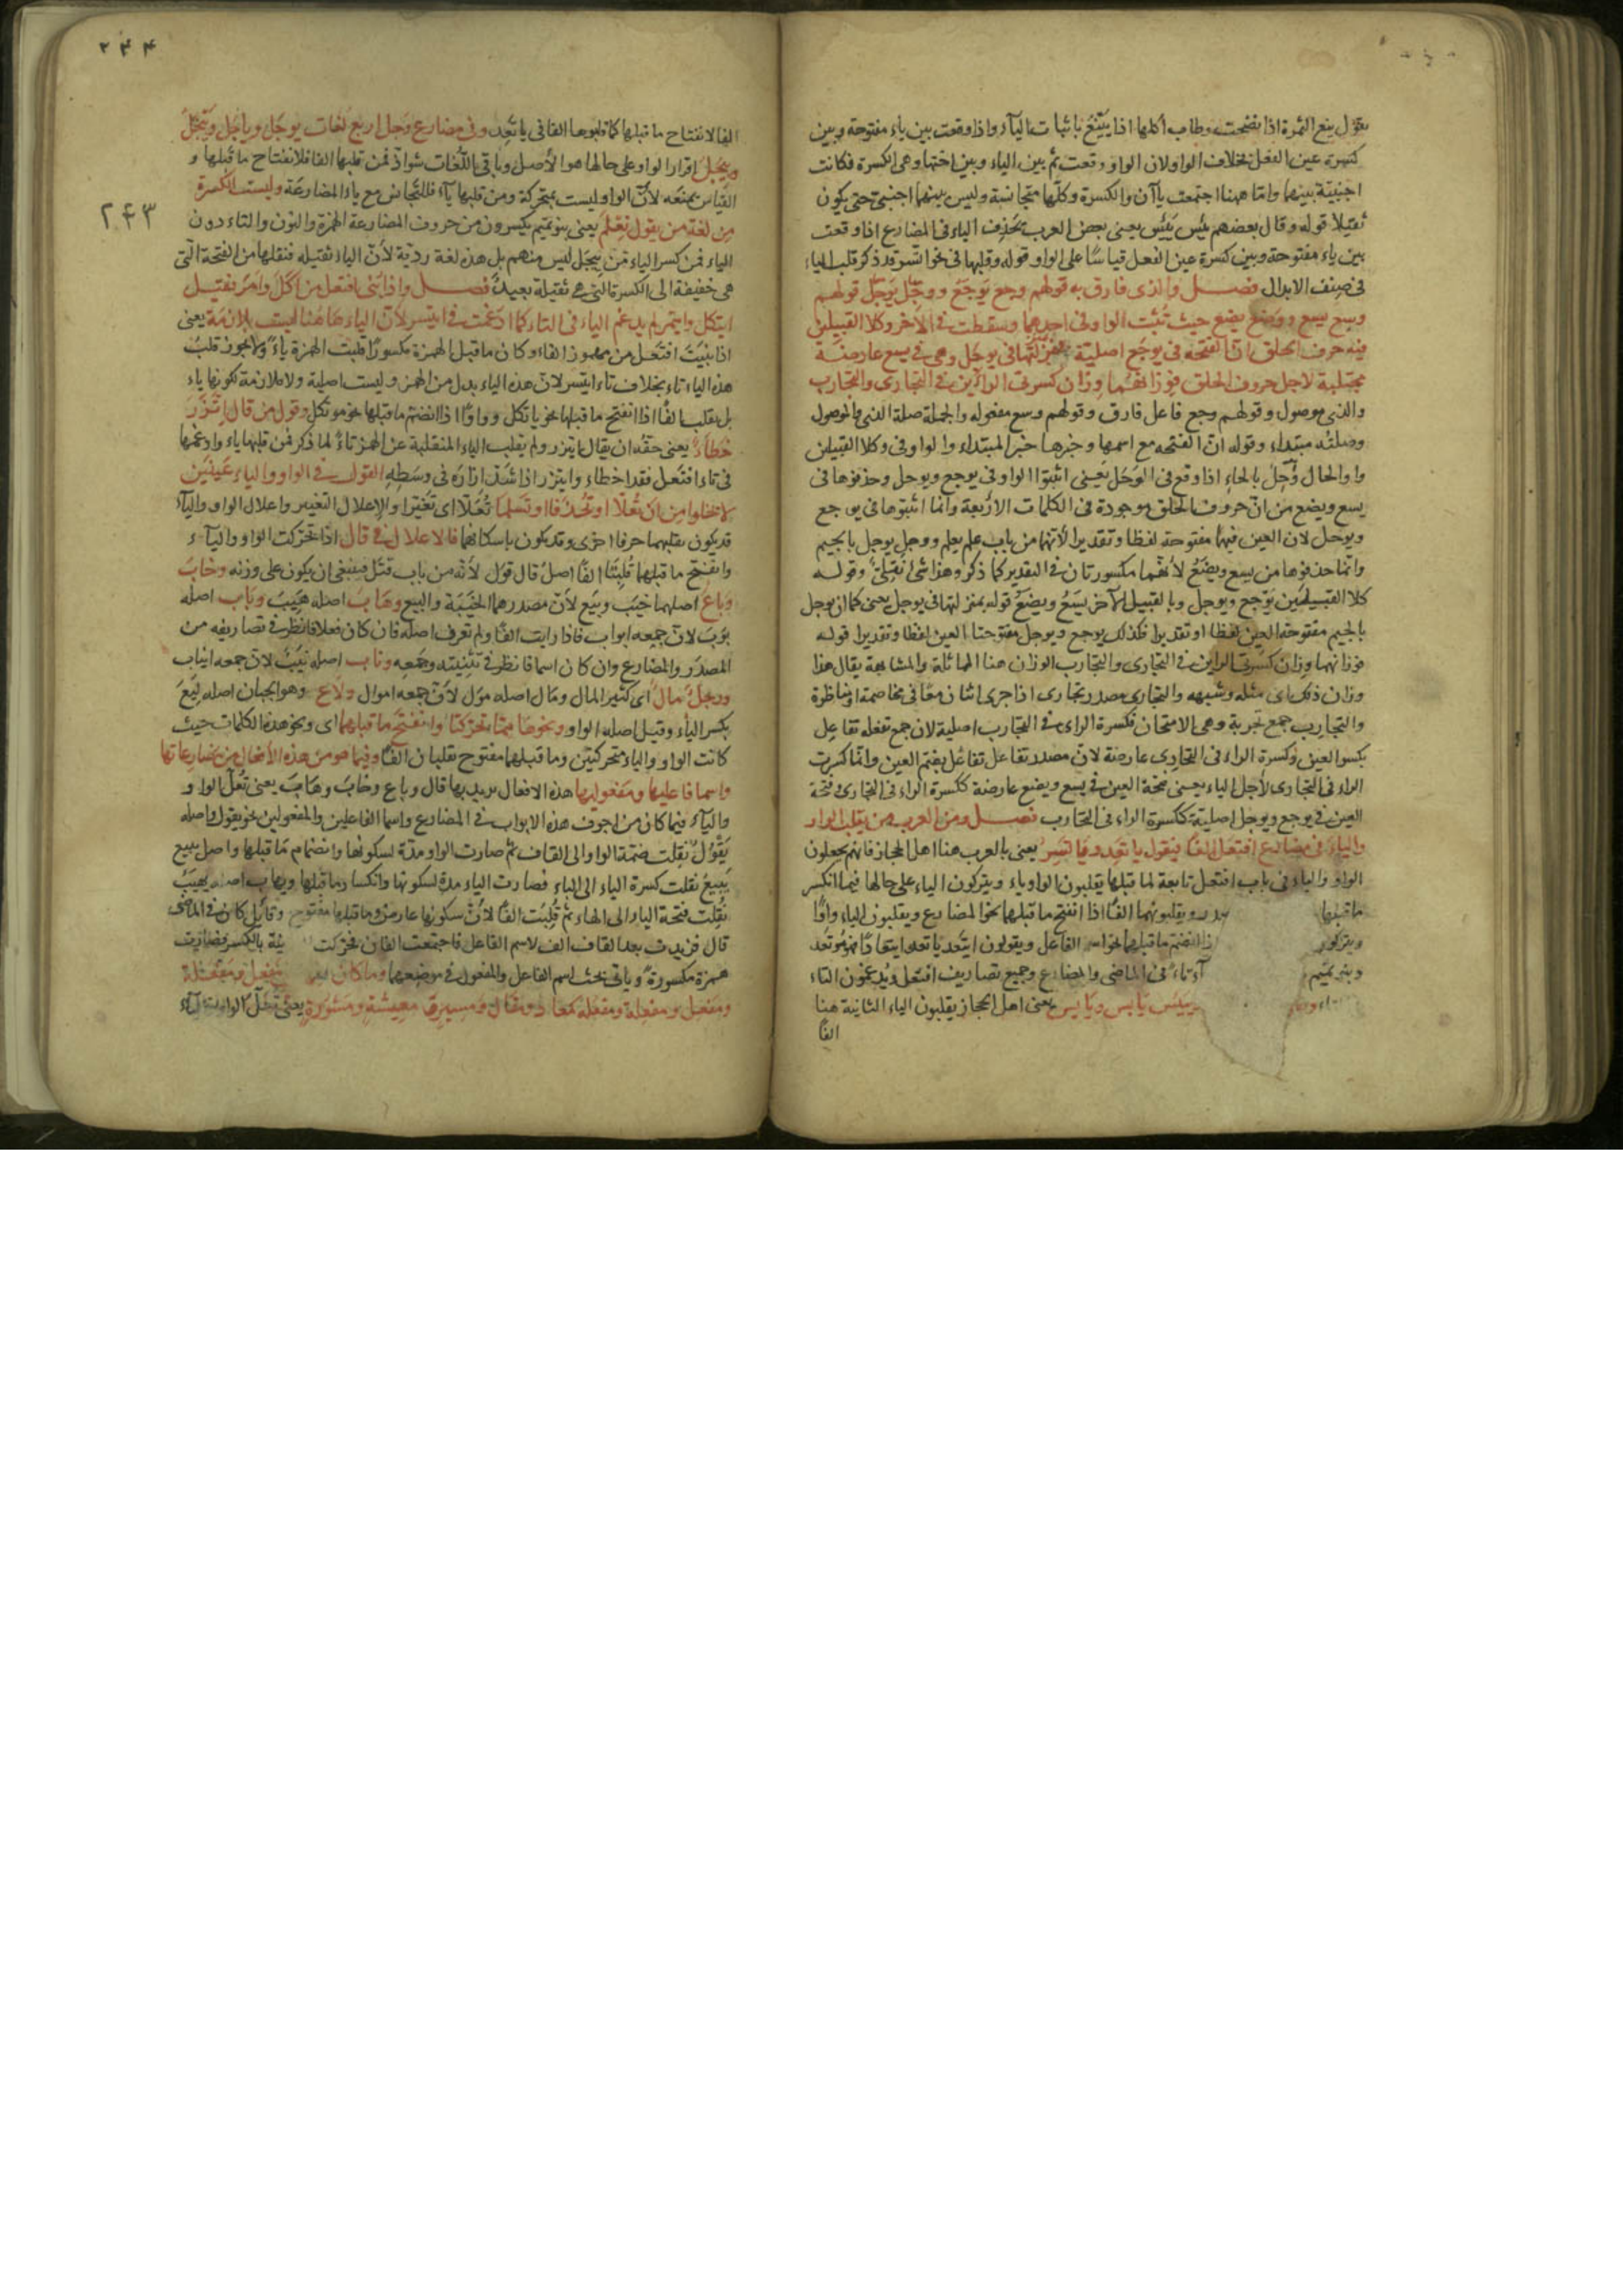 تقول ينع الثمرة اذا نضجت وطاب اكلها اذا يَيْنَعُ باثبات الياء واذا وقعت بين ياء مفتوحة وبين
كسرة عين الفعل بخلاف الواو لان الواو وقعت ثم بين الياء وبين اختها وهى الكسرة فكانت
اجنبيّة بينهما وامّا ههنا اجتمعت ياآن والكسرة وكلّها متجانسة وليس بينهما اجنبى حتى يكون
ثقيلا قوله وقال بعضهم يئس يَئِسُ يعنى بعض العرب يحذف الياء فى المضارع اذا وقعت
بين ياء مفتوحة وبين كسرة عين الفعل قياسًا على الواو قوله وقلبها فى نحو اتّسر قد ذكر قلب الياء
فى صنف الابدال فصل والذى فارق به قولهم وجع يَوجَع ووجل يَوجَل قولهم
وسع يسع ووضع يضع حيث ثبتت الواو فى احدهما وسقطت فى الآخر وكلا القبيلين
فيه حرف الحلق انّ الفتحة فى يوجَع اصلية بمنزلتها فى يوجَل وهى فى يسع عارضة
مجتلبة لاجل حروف الحلق فوزانهما وزان كسرتى الراءين فى التجارى والتجارب
والذى موصول وقولهم وجع فاعل فارق وقولهم وسع مفعوله والجملة صلة الذى فالموصول
وصلته مبتداء وقوله انّ الفتحة مع اسمها وخبرها خبر المبتداء والواو فى وكلا القبيلين
واو الحال وُحِلَ بالحاء اذا وقع فى الوَحَل يَعنى اثبتوا الواو فى يوجع ويوحل وحذفوها فى
يسع ويضع من انّ حروف الحلق موجودة فى الكلمات الاربعة وانما اثبتوها فى يوجع
ويوحل لان العين فيهما مفتوحة لفظا وتقديرا لأنهما من باب علم يعلم ووجل يوجل بالجيم
وانما حذفوها من يسع ويضع لأنهما مكسورتان فى التقدير كما ذكر وهذا شئ ثقيل وقوله
كلا القبيلين يَوْجع ويوجل وبالقبيل الآخر يَسَعُ ويضعُ قوله بمنزلتها فى يوجل يعنى كما ان يوجل
بالجيم مفتوحة العين لفظا وتقديرا فكذلك يوجع ويوحل مفتوحتا العين لفظا وتقديرا قوله
فوزانهما وزان كسرتى الراين فى التجارى والتجارب الوزان هنا المماثلة والمشابهة يقال هذا
وزان ذلك اى مثله وشبهه والتجارى مصدر تجارى اذا جرى اثنان معًا فى مخاصمة او مناظرة
والتجارِب جمع تجربة وهى الامتحان فكسرة الراء فى التجارب اصلية لان جمع تفعلة تفاعِل
بكسر العين وكسرة الراء فى التجارِى عارضة لانّ مصدر تفاعل تفاعُل بضم العين وانّما كسرت
الراء فى التجارى لأجل الياء يعنى فتحة العين فى يسع ويضع عارضة ككسرة الراء فى التجارى وفتحة
العين فى يوجع ويوجل اصلية ككسرة الراء فى التجارب فصل ومن العرب من يقلب الواو
والياء فى مضارع افتعل الفا فيقول ياتعد وياتسر يعنى بالعرب هنا اهل الحجاز فانهم يجعلون
الواو والياء فى باب افتعل تابعة لما قبلها يقلبون الواو ياء ويتركون الياء على حالها فيما انكسر
ما قبلها ويقلبونهما الفًا اذا انفتح ما قبلها نحو المضارع ويقلبون الياء واوًا
ويتركون اذا انضم ما قبلها نحو اسم الفاعل ويقولون ايتعد ياتعد ايتعادًا فهو مُوتَعد
وبنو تميم تاء فى الماضى والمضارع وجميع تصاريف افتعل ويدغمون التاء
ييبس يابس وياييس يعنى اهل الحجاز يقلبون الياء الثانية هنا
الفًا
٢٤٤
٢٤٣
الفا لانفتاح ما قبلها كما قلبوها الفا فى ياتَعِد وفى مضارع وَجل اربع لغات يوجَل وياجَل وييجَلُ
وِيِيجَلُ اقرار الواو على حالها هو الأصل وباقى اللّغات شواذّ فمن قلبها الفا فلانفتاح ما قبلها و
القياس يمنعه لأنّ الواو ليست بمتحركة ومن قلبها ياآء فللتجانس مع ياء المضارعة وليست الكسرة
مِن لغة من يقول تِعْلم يعنى بنو تميم يكسرون من حروف المضارعة الهمزة والنون والتاء دون
الياء فمن كسر الياء من يِيجَل ليس منهم بل هذه لغة رديّة لأنّ الياء ثقيلة فنقلها من الفتحة التى
هى خفيفة الى الكسرة التى هى ثقيلة بعيدٌ فصل واذا بُنى افتعل من اَكَلَ واَمَرَ فقيل
ايتكل وايتمر لم يدغم الياء فى التاء كما ادغمت فى ايتسر لأنّ الياء هاهُنا ليست بلازمة يعنى
اذا بنيتَ افتعل من مهموز الفاء وكان ما قبل الهمزة مكسورًا قلبت الهمزة ياءً ولا يجوز قلبُ
هذه الياء تاء بخلاف تاء ايتسر لانّ هذه الياء بدل من الهمز وليست اصلية ولا ملازمة لكونها ياء
بل يقلب الفًا اذا انفتح ما قبلها نحو ياتكل وواوًا اذا انضم ما قبلها نحو موتكل وقول من قال اتّزَرَ
خَطاءٌ يعنى حقّه ان يقال ايتزر ولم يقلب الياء المنقلبة عن الهمز تاءً لما ذكر فمن قلبها ياء وادغمها
فى تاء افتعل فقد اخطاء وايتزر اذا شدّ ازاره فى وسَطِه القول فى الواو والياء عَينَين
لا تخلوا مِن ان تُعَلّا او تُحْذَفا او تَسْلما تُعَلّا اى تَغَيّرا والإعلال التغيير واعلال الواو والياء
قد يكون بقلبهما حرفا اخرى وقد يكون باسكانهما فالاعلال فى قال اذا تحرّكت الواو والياآء
وانفتح ما قبلها قُلِبَتا الفًا اصلُ قال قَوَل لأنّه من باب قَتَل فينبغى ان يكون على وزنه وخابَ
وَبَاع اصلهما خيَب وبَيَع لأنّ مصدرهما الخَيْبَة والبيع وهَابَ اصله هَيِبَ وبَاب اصله
بوَبَ لانّ جمعه ابواب فاذا رايت الفًا ولم تعرف اصله فان كان فعلا فانظر فى تصاريفه من
المصدَر والمضارع وان كان اسما فانظر فى تثنيته وجَمعِه وناب اصله نَيَبٌ لانّ جمعه انياب
ورجلٌ مالٌ اى كثير المال ومَال اصله موَل لأنّ جمعه اموال ولاع وهو الجبان اصله لَيِعَ
بكسر الياء وقيل اصله الواو ونحوها ممّا تحرّكتا وانفتح ما قبلهما اى ونحو هذه الكلمات حيث
كانت الواو والياء متحركتين وما قبلهما مفتوح تقلبان الفًا وفيما هو من هذه الأفعال من مضارعاتها
واسماء فاعليها ومفعوليها هذه الافعال يريد بها قال وباع وخابَ وهَابَ يعنى تُعَلّ الواو
والياآء فيما كان من اجوف هذه الابواب فى المضارع واسماء الفاعلين والمفعولين نحو يقول واصله
يَقْوُلُ نقلت ضمّة الواو الى القاف ثم صارت الواو مدّة لسكونها وانضمام ما قبلها واصل يبيع
يَبْيعُ نقلت كسرة الياء الى الباء فصارت الياء مدة لسكونها وانكسار ما قبلها ويهاب اصله يهيَبُ
نُقِلت فتحة الياء الى الهاء ثم قُلِبَت الفًا لأنّ سكونها عارض وما قبلها مفتوح وقائل كان فى الماضى
قال فزيدت بعد القاف الف لاسم الفاعل فاجتمعت الفان فحرّكت بالكسر فصارت
همزة مكسورةً وياتى بحث اسم الفاعل والمفعول فى موضعهما وما كان مَفْعل ومَفْعَلة
ومَفعِل ومفعِلة ومفعلة كمعاد ومقال ومسير ومعيشة ومشورة يعنى تُعَلّ الواو والياء